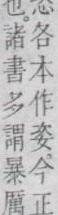 各本作姿今正
也。諸書多謂暴厲